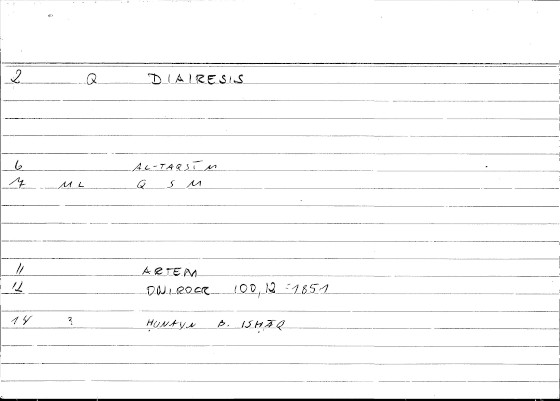 2 Q DIAIRESIS
6 AL-TAQSĪM
7 ML Q S M
11 ARTEM
12 ONIROCR 100,12 = 1851
14 ? ḤUNAYN B. ISḤĀQ